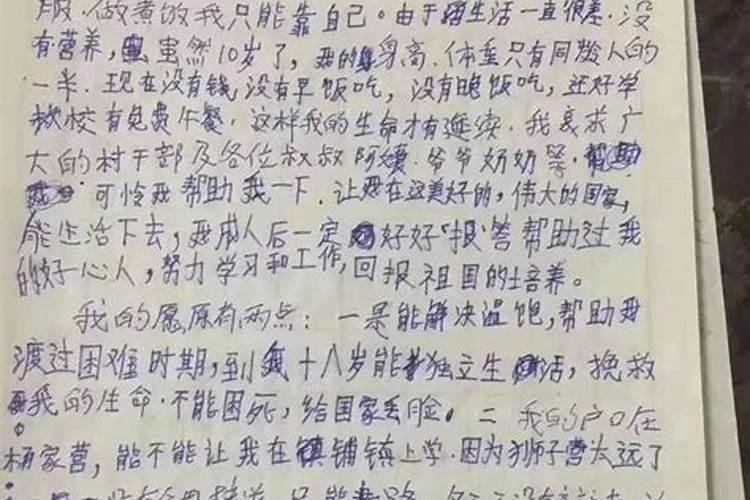 服,做煮饭我只能靠自己。由于生活一直很差.没
有营养,虽然10岁了,我的身高.体重只有同龄人的
一半.现在没有钱没有早饭吃,没有晚饭吃,还好学
校有免费午餐.这样我的生命才有延续.我衷求广
大的村干部及各位叔叔阿姨.爷爷奶奶等,
可怜我帮助我一下.让我在这美好的,伟大的国家,
能生活下去,我成人后一定好好"报"答帮助过我
的好心人,努力学习和工作,回报祖国的培养。
我的愿原有两点:一是能解决温饱,帮助我
渡过困难时期,到我十八岁能独立生活,挽救
我的生命.不能困死,给国家丢脸。二我的户口在
杨家营,能不能让我在镇铺镇上学.因为狮子营太远了